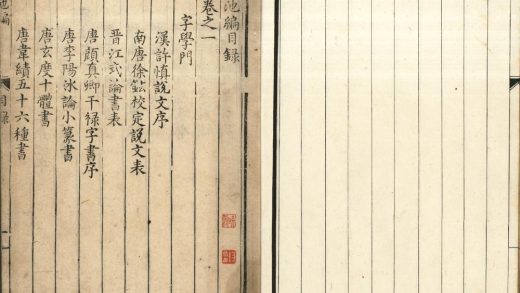 池編目録
卷之一
字學門
漢許慎説文序
南唐徐鉉校定説文表
晋江式論書表
唐顔真卿干禄字書序
唐李陽冰論小篆書
唐玄度十體書
唐韋續五十六種書
池編
目録